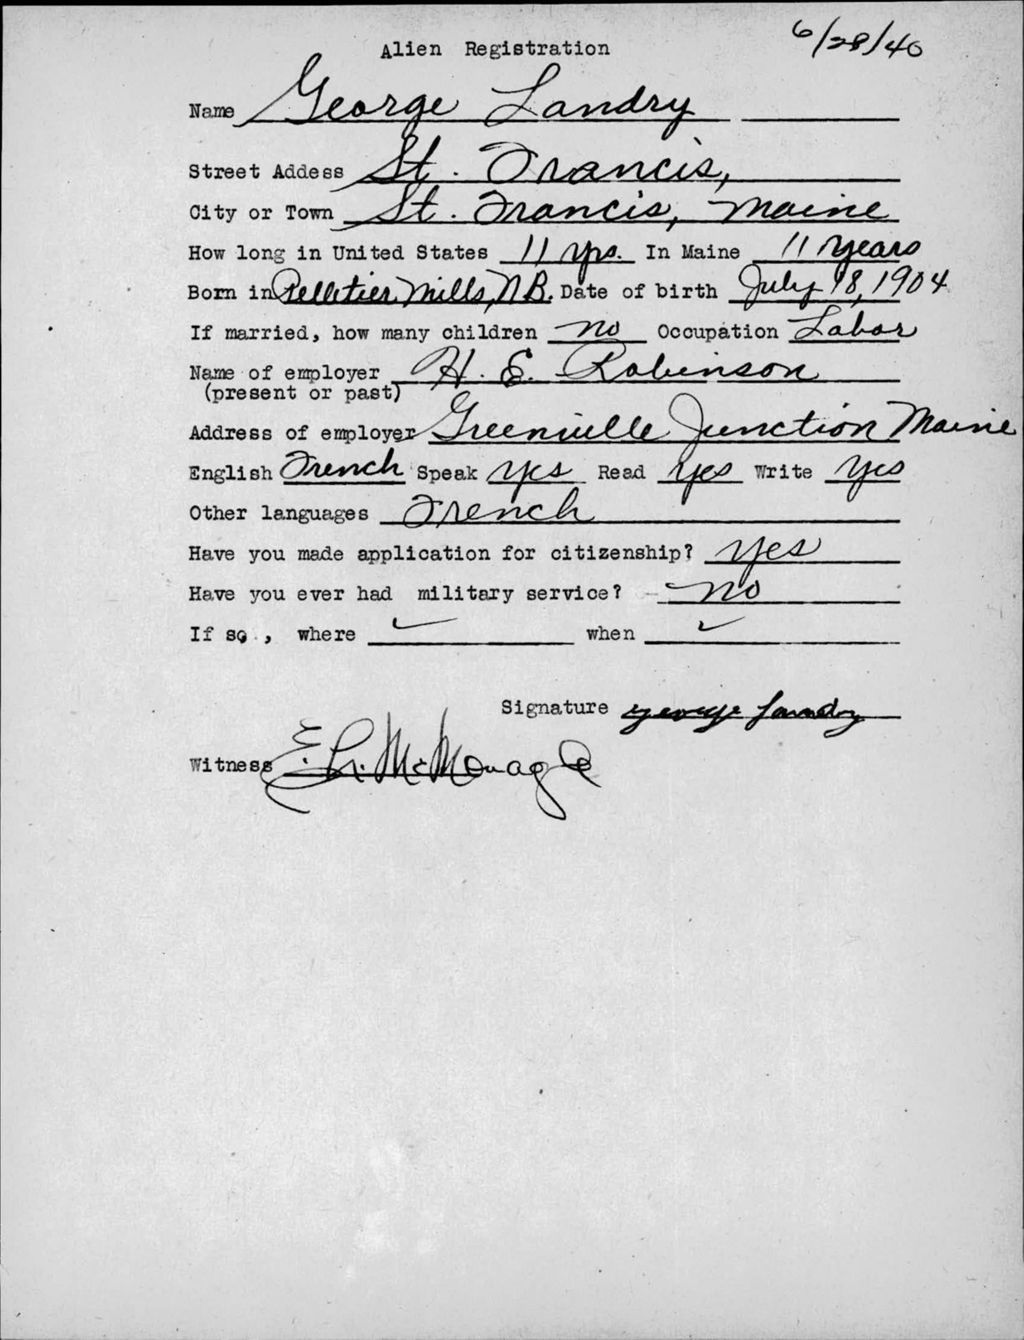 Alien Registration 6/28/40
Name George Landry
Street Addess St. Francis,
City or Town St. Francis, Maine
How long in United States 11 yrs. In Maine 11 years
Born in Pelletier Mills, N.B. Date of birth July 18, 1904
If married, how many children no Occupation Labor
Name of employer H. E. Robinson
(present or past)
Address of employer Greenville Junction Maine
English French Speak yes Read yes Write yes
Other languages French
Have you made application for citizenship? Yes
Have you ever had military service? no
If so , where ✓ when ✓
Signature george landry
Witness E. L. McMonagle